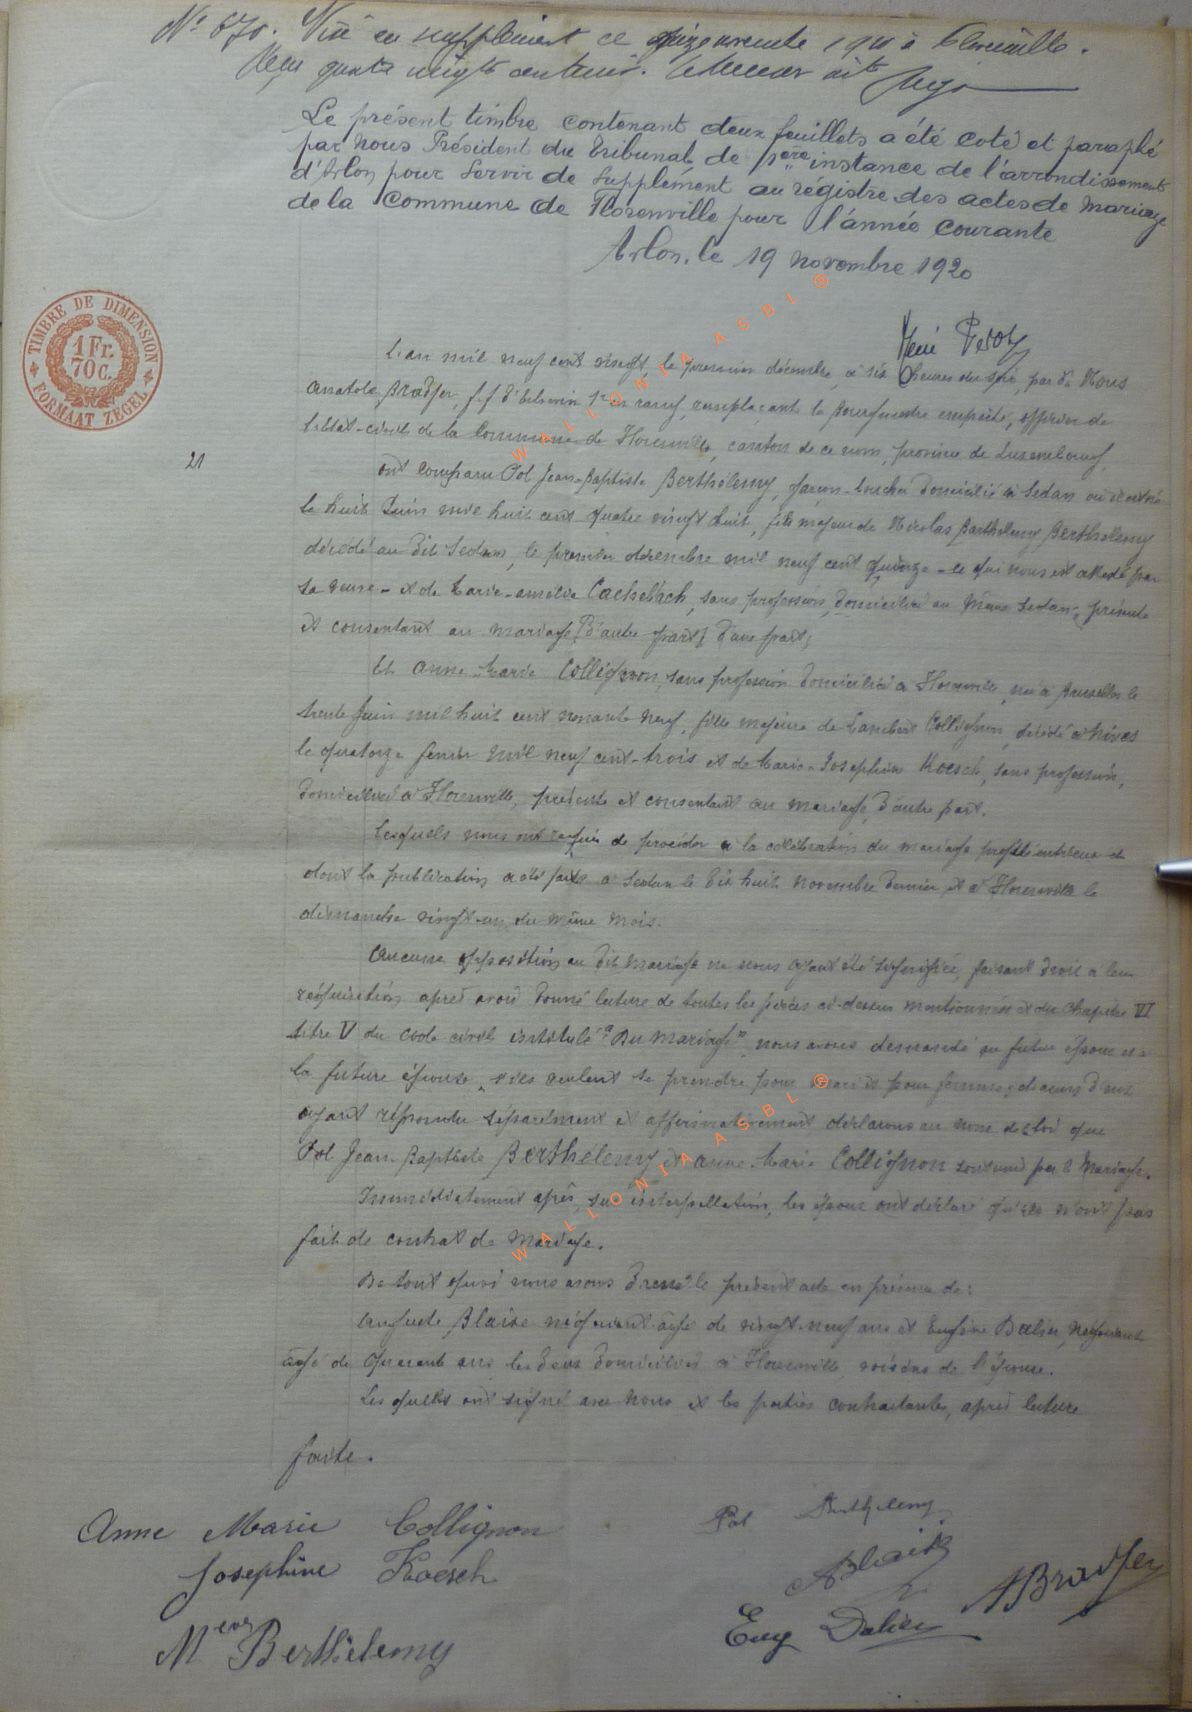 Nº 670. Visé en supplément ce
Reçu quatre vingts centimes.
Le présent timbre contenant deux feuillets a été coté et paraphé
par Nous Président du Tribunal de 1ère instance de l'arrondissement
d'Arlon pour servir de supplément au régistre des actes de Mariage
de la Commune de Florenville pour l'année courante
Arlon, le 19 novembre 1920
TIMBRE DE DIMENSION
1 Fr.
70 C.
FORMAAT ZEGEL
L'an mil neuf cent vingt, le premier décembre, à six heures du soir, par dt Nous
Anatole Bradfer, f.f. d'échevin 1er en rang, remplaçant le bourgmestre empêché, officier de
l'état-civil de la Commune de Florenville, canton de ce nom, province de Luxembourg,
21
ont comparu Pol Jean-Baptiste Berthélemy, garçon-boucher domicilié à Sedan où il est né
le huit Juin mil huit cent quatre vingt huit, fils majeur de Nicolas Barthelemy Berthélemy
décédé au dit Sedan, le premier décembre mil neuf cent quinze - ce qui nous est attesté par
sa veuve - et de Marie-Amélie Cachelach, sans profession, domiciliée au même Sedan, présente
et consentant au mariage, d'autre part, d'une part,
Et Anne-Marie Collignon, sans profession domiciliée à Florenville, née à Bruxelles le
trente Juin mil huit cent nonante neuf, fille majeure de Lambert Collignon, décédé à Nives
le quatorze février mil neuf cent-trois et de Marie-Joséphine Koesch, sans profession,
domiciliée à Florenville, présente et consentant au mariage, d'autre part.
Lesquels nous ont requis de procéder à la célébration du mariage projeté entre eux et
dont la publication a été faite à Sedan le dix huit novembre dernier et à Florenville le
dimanche vingt-un du même mois.
Aucune opposition au dit mariage ne nous ayant été signifiée, faisant droit à leur
réquisition, après avoir donné lecture de toutes les pièces ci-dessus mentionnées et du chapitre VI
titre V du code civil intitulé "Du Mariage", nous avons demandé au futur époux et à
la future épouse, s'ils veulent se prendre pour mari et pour femme; chacun d'eux
ayant répondu séparément et affirmativement déclarons au nom de la loi que
Pol Jean-Baptiste Berthélemy et Anne-Marie Collignon sont unis par le Mariage.
Immédiatement après, sur interpellation, les époux ont déclaré qu'ils n'ont pas
fait de contrat de mariage.
De tout quoi nous avons dressé le présent acte en présence de:
Auguste Blaise négociant âgé de vingt-neuf ans et Eugène Dalier, négociant
âgé de quarante ans, les deux domiciliés à Florenville, voisins de l'épouse.
Lesquels ont signé avec Nous et les parties contractantes, après lecture
faite.
Anne Marie Collignon
Pol Berthelemy
Josephine Koesch
ABlaise
ABradfer
Meuve Berthélemy
Eug Dalier
WALLONIA ASBL ®
WALLONIA ASBL ®